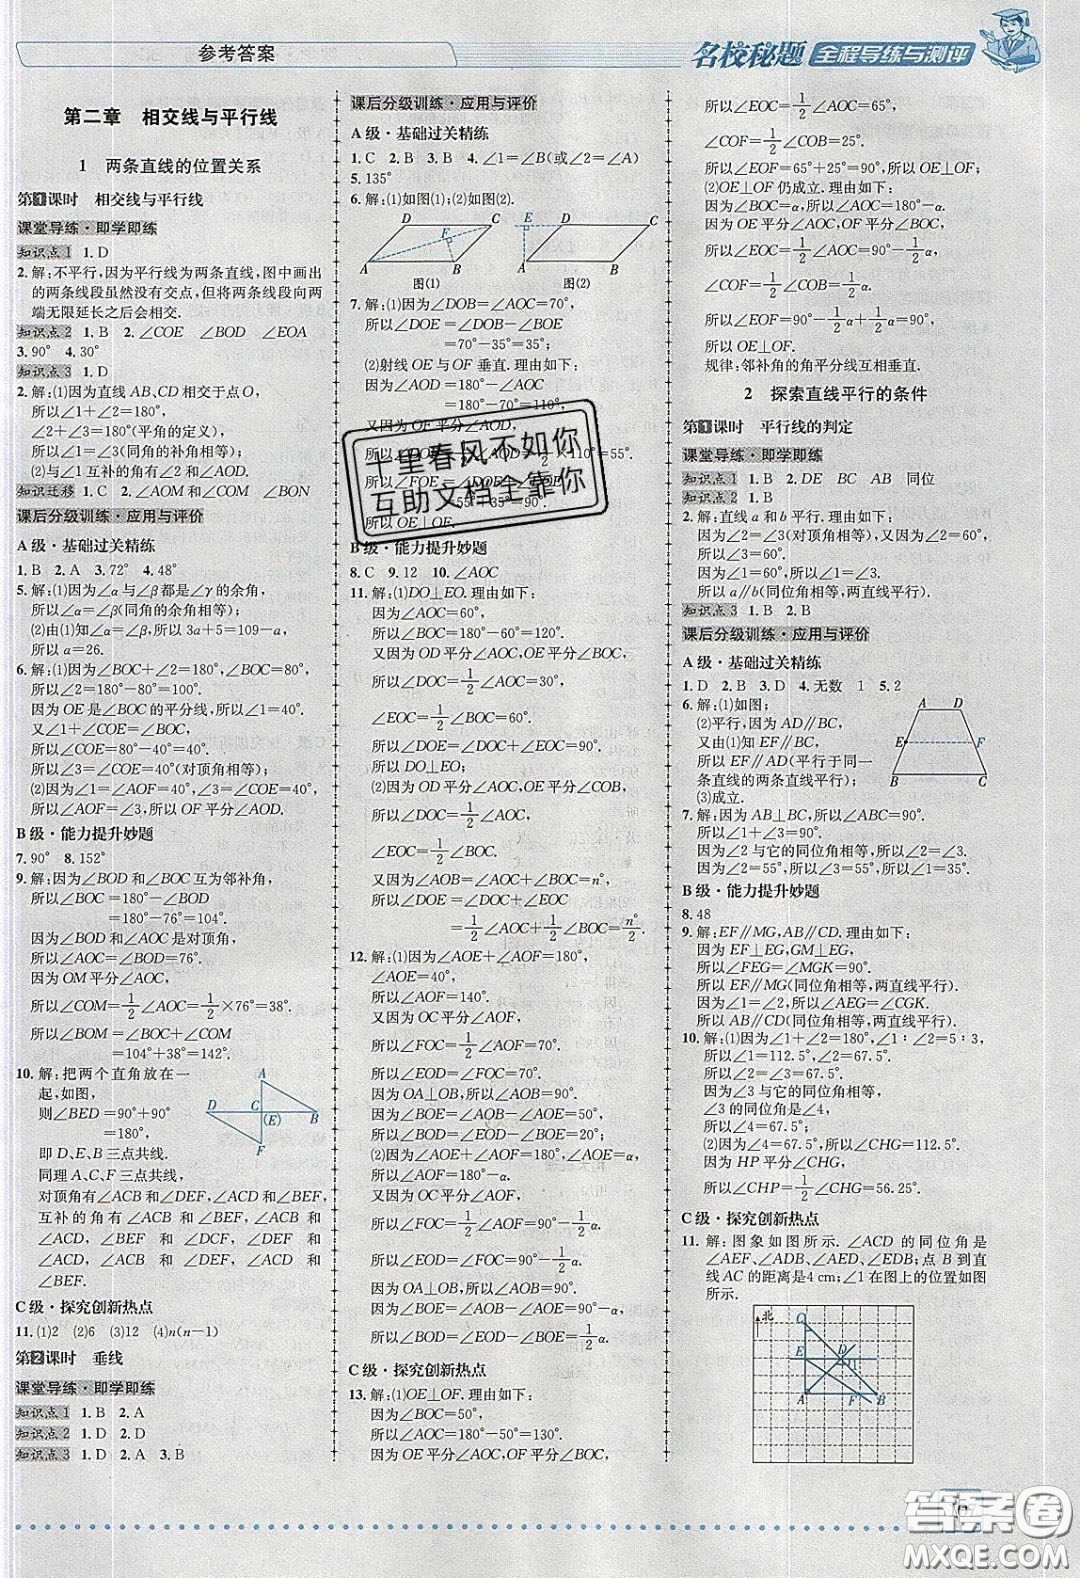 参考答案
名校秘题 全程导练与测评
第二章 相交线与平行线
1 两条直线的位置关系
第1课时 相交线与平行线
课堂导练·即学即练
知识点1 1.D
2.解:不平行,因为平行线为两条直线,图中画出
的两条线段虽然没有交点,但将两条线段向两
端无限延长之后会相交.
知识点2 1.B 2.∠COE ∠BOD ∠EOA
3.90° 4.30°
知识点3 1.D
2.解:(1)因为直线AB,CD相交于点O,
所以∠1+∠2=180°,
∠2+∠3=180°(平角的定义),
所以∠1=∠3(同角的补角相等);
(2)与∠1互补的角有∠2和∠4.
知识迁移 1.C 2.∠AOM和∠COM ∠BON
课后分级训练·应用与评价
A级·基础过关精练
1.B 2.A 3.72° 4.48°
5.解:(1)因为∠α与∠β都是∠γ的余角,
所以∠α=∠β(同角的余角相等);
(2)由(1)知∠α=∠β,所以3a+5=109-a,
所以a=26.
6.解:(1)因为∠BOC+∠2=180°,∠BOC=80°,
所以∠2=180°-80°=100°.
因为OE是∠BOC的平分线,所以∠1=40°.
又∠1+∠COE=∠BOC,
所以∠COE=80°-40°=40°.
所以∠3=∠COE=40°(对顶角相等);
(2)因为∠2+∠AOF=180°,∠3=∠COE=40°,
所以∠AOF=∠3,所以OF平分∠AOD.
B级·能力提升妙题
7.90° 8.152°
9.解:因为∠BOD和∠BOC互为邻补角,
所以∠BOC=180°-∠BOD
=180°-76°=104°.
因为∠BOD和∠AOC是对顶角,
所以∠AOC=∠BOD=76°.
因为OM平分∠AOC,
所以∠COM=1/2∠AOC=1/2×76°=38°.
所以∠BOM=∠BOC+∠COM
=104°+38°=142°.
10.解:把两个直角放在一
起,如图,
则∠BED=90°+90°
=180°,
即D、E、B三点共线.
同理A、C、F三点共线,
对顶角有∠ACB和∠DEF,∠ACD和∠BEF,
互补的角有∠ACB和∠BEF,∠ACB和
∠ACD,∠BEF和∠DEF,∠DCF和
∠ACD,∠DEF和∠ACD,∠ACB和
∠BEF.
A
D C (E) B
F
C级·探究创新热点
11.(1)2 (2)6 (3)12 (4)n(n-1)
第2课时 垂线
课堂导练·即学即练
知识点1 1.B 2.A
知识点2 1.D 2.D
知识点3 1.D 2.A 3.B
课后分级训练·应用与评价
A级·基础过关精练
1.C 2.B 3.B 4.∠1=∠B(或∠2=∠A)
5.135°
6.解:(1)如图(1);(2)如图(2).
D C
F
A B
图(1)
E D C
A B
图(2)
7.解:(1)因为∠DOB=∠AOC=70°,
所以∠DOE=∠DOB-∠BOE
=70°-35°=35°;
(2)射线OE与OF垂直.理由如下:
因为∠AOD=180°-∠AOC
=180°-70°=110°,
所以OE⊥OF.
十里春风不如你
互助文档全靠你
B级·能力提升妙题
8.C 9.12 10.∠AOC
11.解:(1)DO⊥EO.理由如下:
因为∠AOC=60°,
所以∠BOC=180°-60°=120°.
又因为OD平分∠AOC,OE平分∠BOC,
所以∠DOC=1/2∠AOC=30°,
∠EOC=1/2∠BOC=60°.
所以∠DOE=∠DOC+∠EOC=90°.
所以DO⊥EO;
(2)因为OD平分∠AOC,OE平分∠COB,
所以∠DOC=1/2∠AOC,
∠EOC=1/2∠BOC.
又因为∠AOB=∠AOC+∠BOC=n°,
所以∠DOE=∠DOC+∠EOC
=1/2∠AOC+1/2∠BOC=n°/2.
12.解:(1)因为∠AOE+∠AOF=180°,
∠AOE=40°,
所以∠AOF=140°.
又因为OC平分∠AOF,
所以∠FOC=1/2∠AOF=70°.
所以∠EOD=∠FOC=70°.
因为OA⊥OB,所以∠AOB=90°.
所以∠BOE=∠AOB-∠AOE=50°,
所以∠BOD=∠EOD-∠BOE=20°;
(2)因为∠AOE+∠AOF=180°,∠AOE=α,
所以∠AOF=180°-α.
又因为OC平分∠AOF,
所以∠FOC=1/2∠AOF=90°-1/2α.
所以∠EOD=∠FOC=90°-1/2α.
因为OA⊥OB,所以∠AOB=90°.
所以∠BOE=∠AOB-∠AOE=90°-α.
所以∠BOD=∠EOD-∠BOE=1/2α.
C级·探究创新热点
13.解:(1)OE⊥OF.理由如下:
因为∠BOC=50°,
所以∠AOC=180°-50°=130°.
因为OE平分∠AOC,OF平分∠BOC,
所以∠EOC=1/2∠AOC=65°,
∠COF=1/2∠COB=25°.
所以∠EOF=65°+25°=90°,所以OE⊥OF;
(2)OE⊥OF仍成立.理由如下:
因为∠BOC=α,所以∠AOC=180°-α.
因为OE平分∠AOC,OF平分∠BOC,
所以∠EOC=1/2∠AOC=90°-1/2α,
∠COF=1/2∠COB=1/2α.
所以∠EOF=90°-1/2α+1/2α=90°.
所以OE⊥OF.
规律:邻补角的角平分线互相垂直.
2 探索直线平行的条件
第1课时 平行线的判定
课堂导练·即学即练
知识点1 1.B 2.DE BC AB 同位
知识点2 1.B
2.解:直线a和b平行.理由如下:
因为∠2=∠3(对顶角相等),∠2=60°,
所以∠3=60°.
所以a∥b(同位角相等,两直线平行).
知识点3 1.B 2.B
课后分级训练·应用与评价
A级·基础过关精练
1.D 2.B 3.D 4.无数 1 5.2
6.解:(1)如图;
(2)平行,因为AD∥BC,
又由(1)知EF∥BC,
所以EF∥AD(平行于同一
条直线的两条直线平行);
(3)成立.
A D
E F
B C
7.解:因为AB⊥BC,所以∠ABC=90°.
所以∠1+∠3=90°.
因为∠2与它的同位角相等,所以∠2=∠3.
因为∠2=55°,所以∠3=55°,所以∠1=35°.
B级·能力提升妙题
8.48
9.解:EF∥MG,AB∥CD.理由如下:
因为EF⊥EG,GM⊥EG,
所以∠FEG=∠MGK=90°.
所以EF∥MG(同位角相等,两直线平行).
又因为∠1=∠2,所以∠AEG=∠CGK.
所以AB∥CD(同位角相等,两直线平行).
10.解:(1)因为∠1+∠2=180°,∠1∶∠2=5∶3,
所以∠1=112.5°,∠2=67.5°.
所以∠3=∠2=67.5°.
因为∠3与它的同位角相等,
∠3的同位角是∠4,
所以∠4=67.5°;
(2)因为∠4=67.5°,所以∠CHG=112.5°.
因为HP平分∠CHG,
所以∠CHP=1/2∠CHG=56.25°.
C级·探究创新热点
11.解:图象如图所示.∠ACD的同位角是
∠AEF、∠ADB、∠AED、∠EDB;点B到直
线AC的距离是4cm;∠1在图上的位置如图
所示.
北
C
E D 1
A F B
答案圈
MXQE.COM